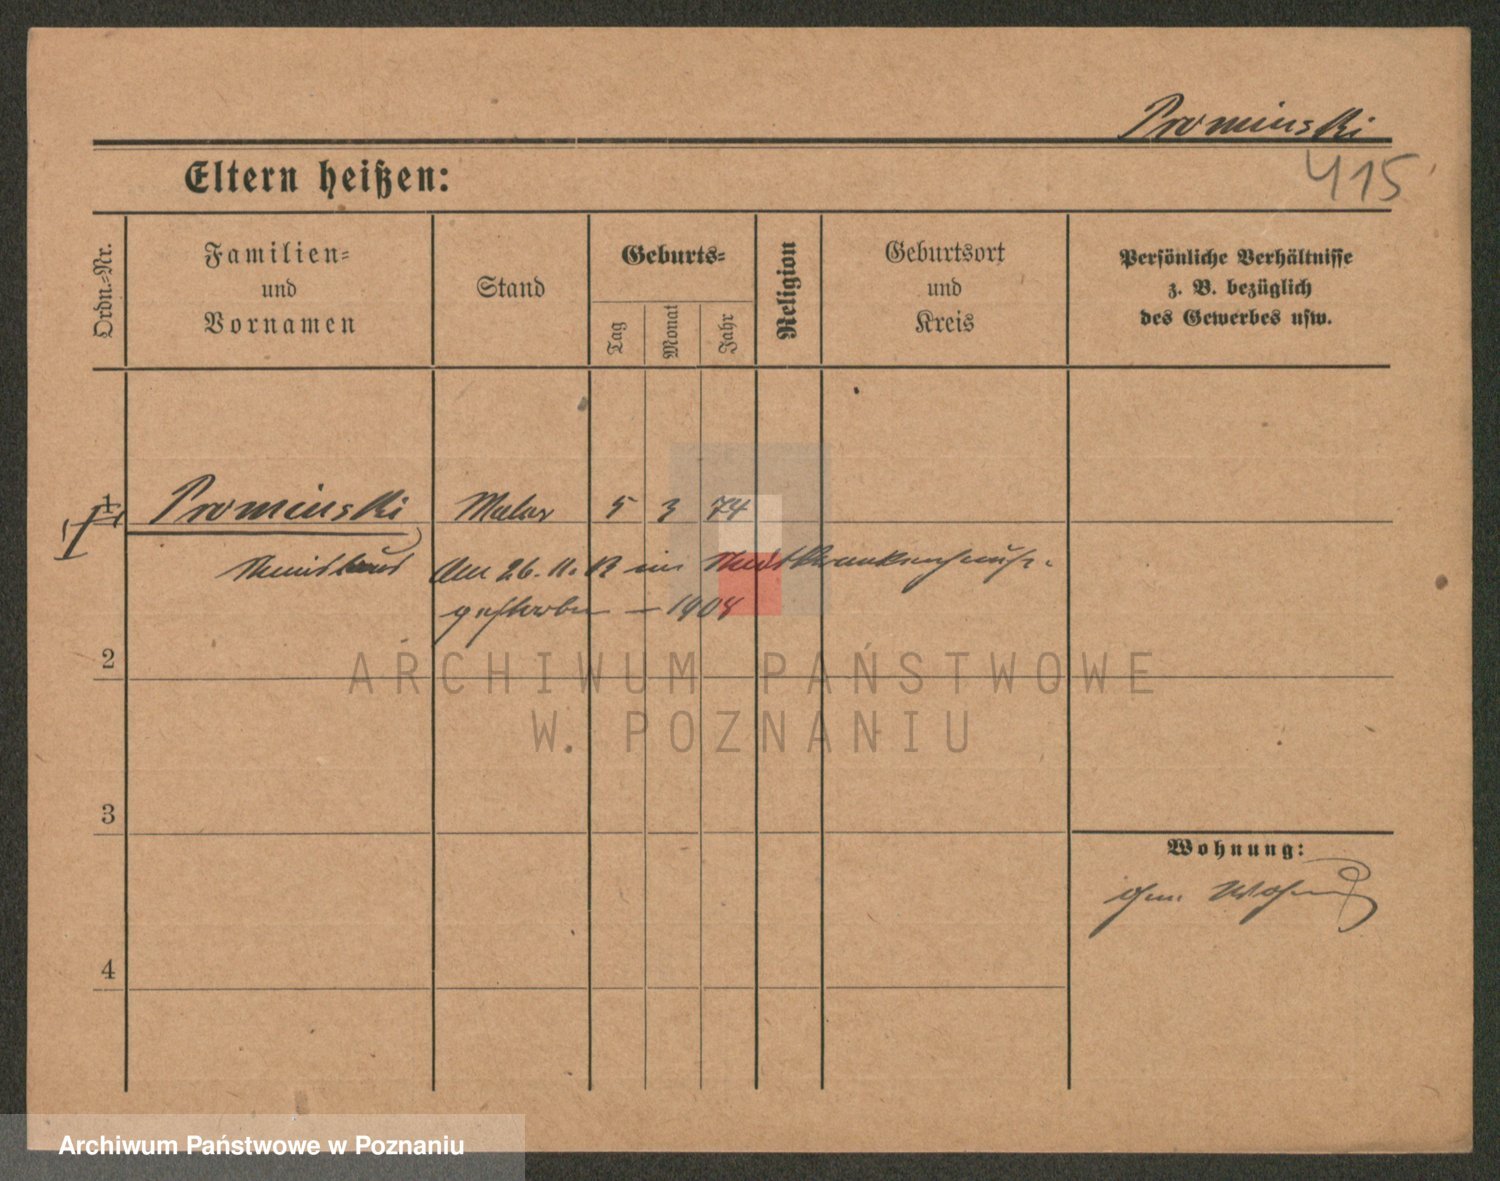 Prominski
415
Eltern heißen:
Ordn.-Nr.
Familien-
und
Vornamen
Stand
Geburts-
Tag
Monat
Jahr
Religion
Geburtsort
und
Kreis
Persönliche Verhältnisse
z. B. bezüglich
des Gewerbes usw.
1 Prominski Maler 5 3 74
Am 26. 11. 12 im Stadtkrankenhause
gestorben — 1904
2
ARCHIWUM PAŃSTWOWE
W POZNANIU
3
Wohnung:
ohne Wohnung
4
Archiwum Państwowe w Poznaniu